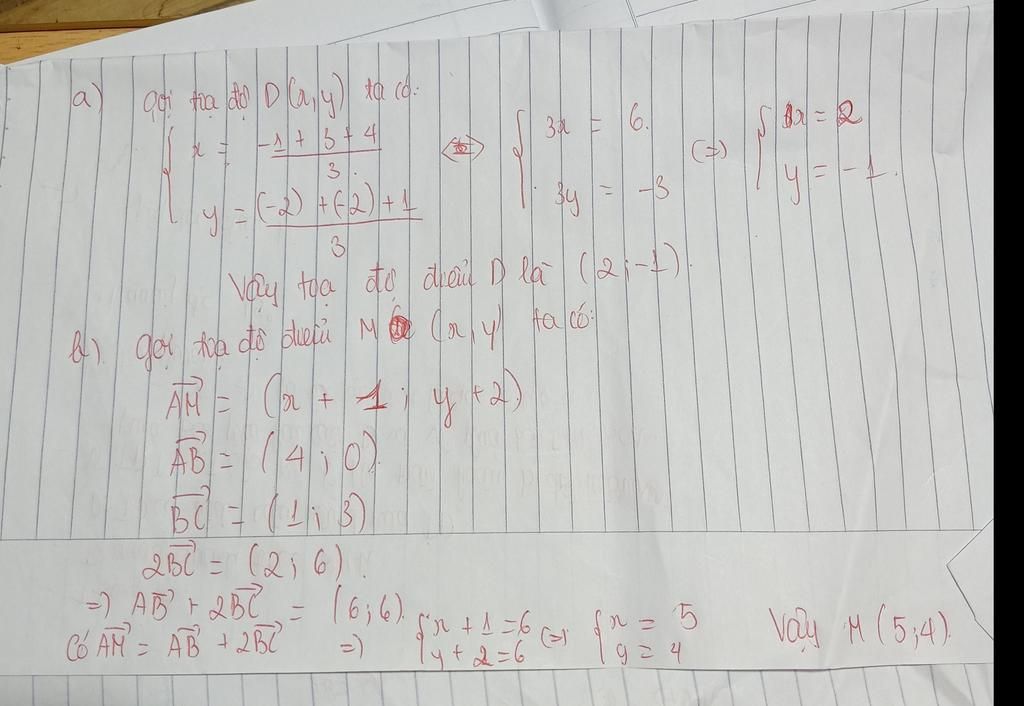 a) gọi tọa độ D(x,y) ta có:
{ x = -1 + 3 + 4 / 3 <=> { 3x = 6. (=) { x = 2
y = (-2) + (-2) + 1 / 3 3y = -3 y = -1.
Vậy tọa độ điểm D là (2;-1).
b) gọi tọa độ điểm M (x,y) ta có:
AM = (x + 1; y+2)
AB = (4; 0).
BC = (1; 3)
2BC = (2; 6).
=) AB + 2BC = (6;6).
Có AM = AB + 2BC =) { x + 1 = 6 (=) { x = 5 Vậy M(5;4).
y + 2 = 6 y = 4